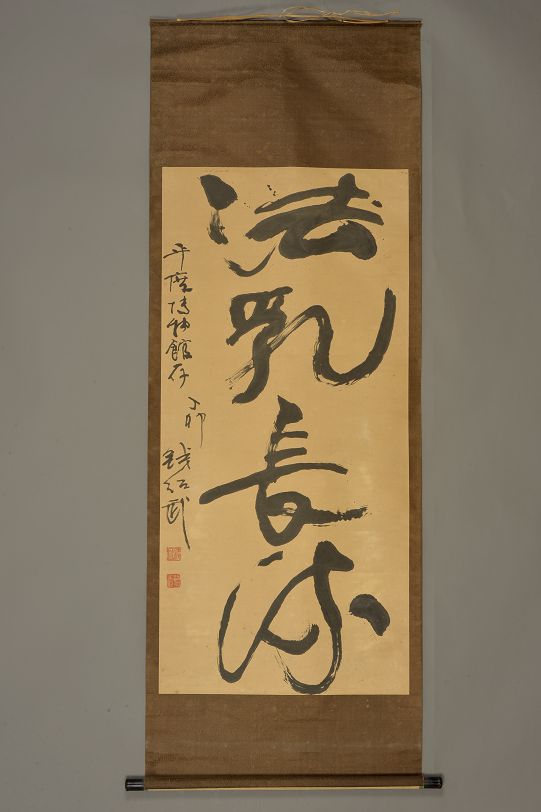 法乳長流
平度博物館存
丁卯
錢紹武